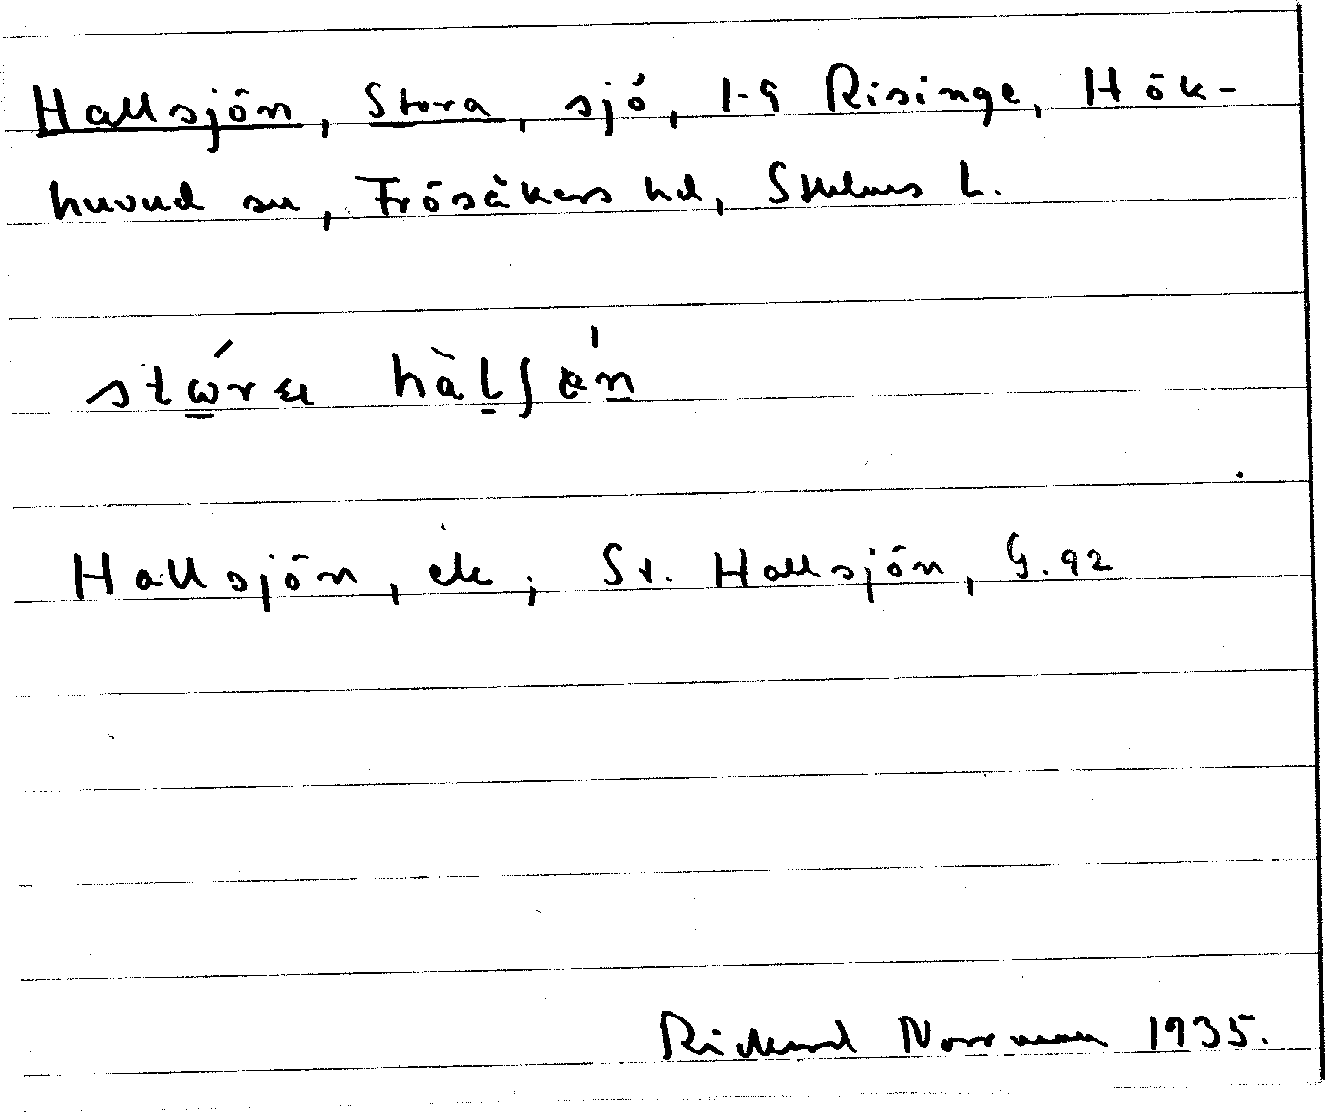 Hallsjön, Stora, sjö, 1-9 Risinge, Hök-
huvud sn, Frösåkers hd, Sthlms L.
Hallsjön, ek; St. Hallsjön, G. 92
Rickard Norrman 1935.